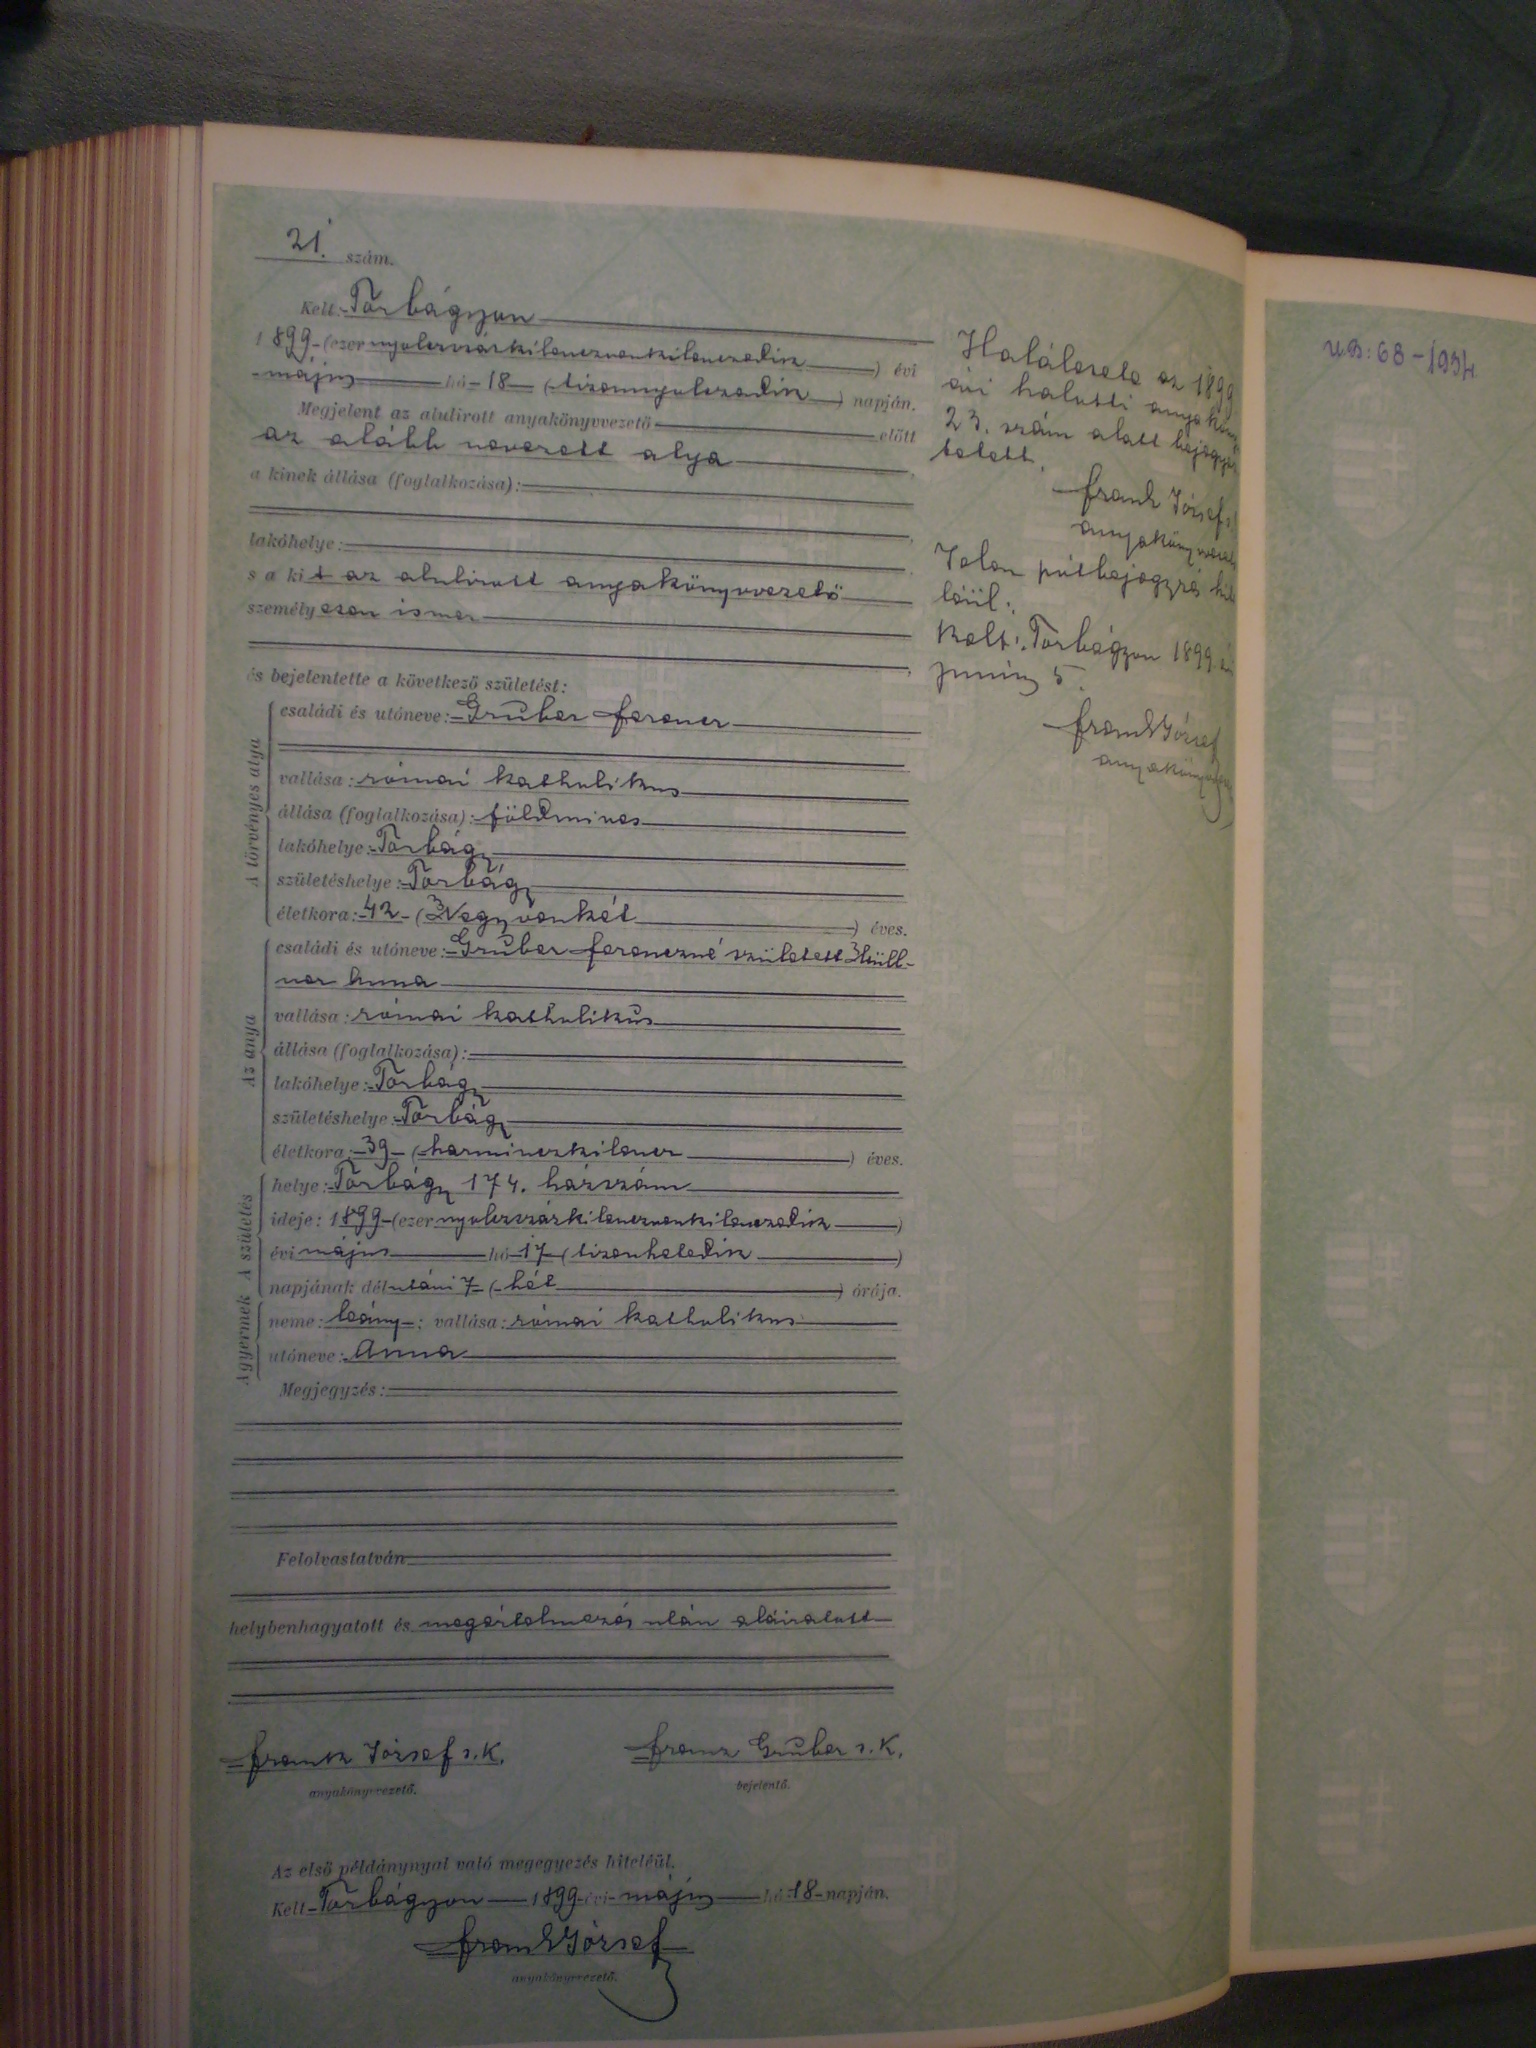 21. szám.
Kelt: Torbágyon
1899 (ezer nyolczszázkilencvenkilenczedik) évi
május hó 18 (tizennyolczadik) napján.
Megjelent az alulirott anyakönyvvezető előtt
az alább nevezett atya
a kinek állása (foglalkozása):
lakóhelye:
s a kit az alulirott anyakönyvvezető
személyesen ismer
és bejelentette a következő születést:
A törvényes atya
családi és utóneve: Gruber Ferencz
vallása: római katholikus
állása (foglalkozása): földmives
lakóhelye: Torbágy
születéshelye: Torbágy
életkora: 42 (Negyvenkét) éves.
Az anya
családi és utóneve: Gruber Ferenczné született Hüll-
ner Anna
vallása: római katholikus
állása (foglalkozása):
lakóhelye: Torbágy
születéshelye: Torbágy
életkora: 39 (harminczkilencz) éves.
A születés
helye: Torbágy 174. házszám
ideje: 1899 (ezer nyolczszázkilencvenkilenczedik)
évi május hó 17 (tizenhetedik)
napjának délutáni 7 (hét) órája.
A gyermek
neme: leány; vallása: római katholikus
utóneve: Anna
Megjegyzés:
Felolvastatván
helybenhagyatott és megértelmezés után aláiratott
Frank József s. k.
anyakönyvvezető.
Franz Gruber s. k.
bejelentő.
Az első példánynyal való megegyezés hiteléül.
Kelt Torbágyon 1899 évi május hó 18 napján.
Frank József
anyakönyvvezető.
Halálesete az 1899
évi halotti
23. szám alatt
tetett.
Frank József
Jelen pótbejegyzés
léül.
Kelt: Torbágyon 1899.
junius 5.
Frank József
UB: 68-1934